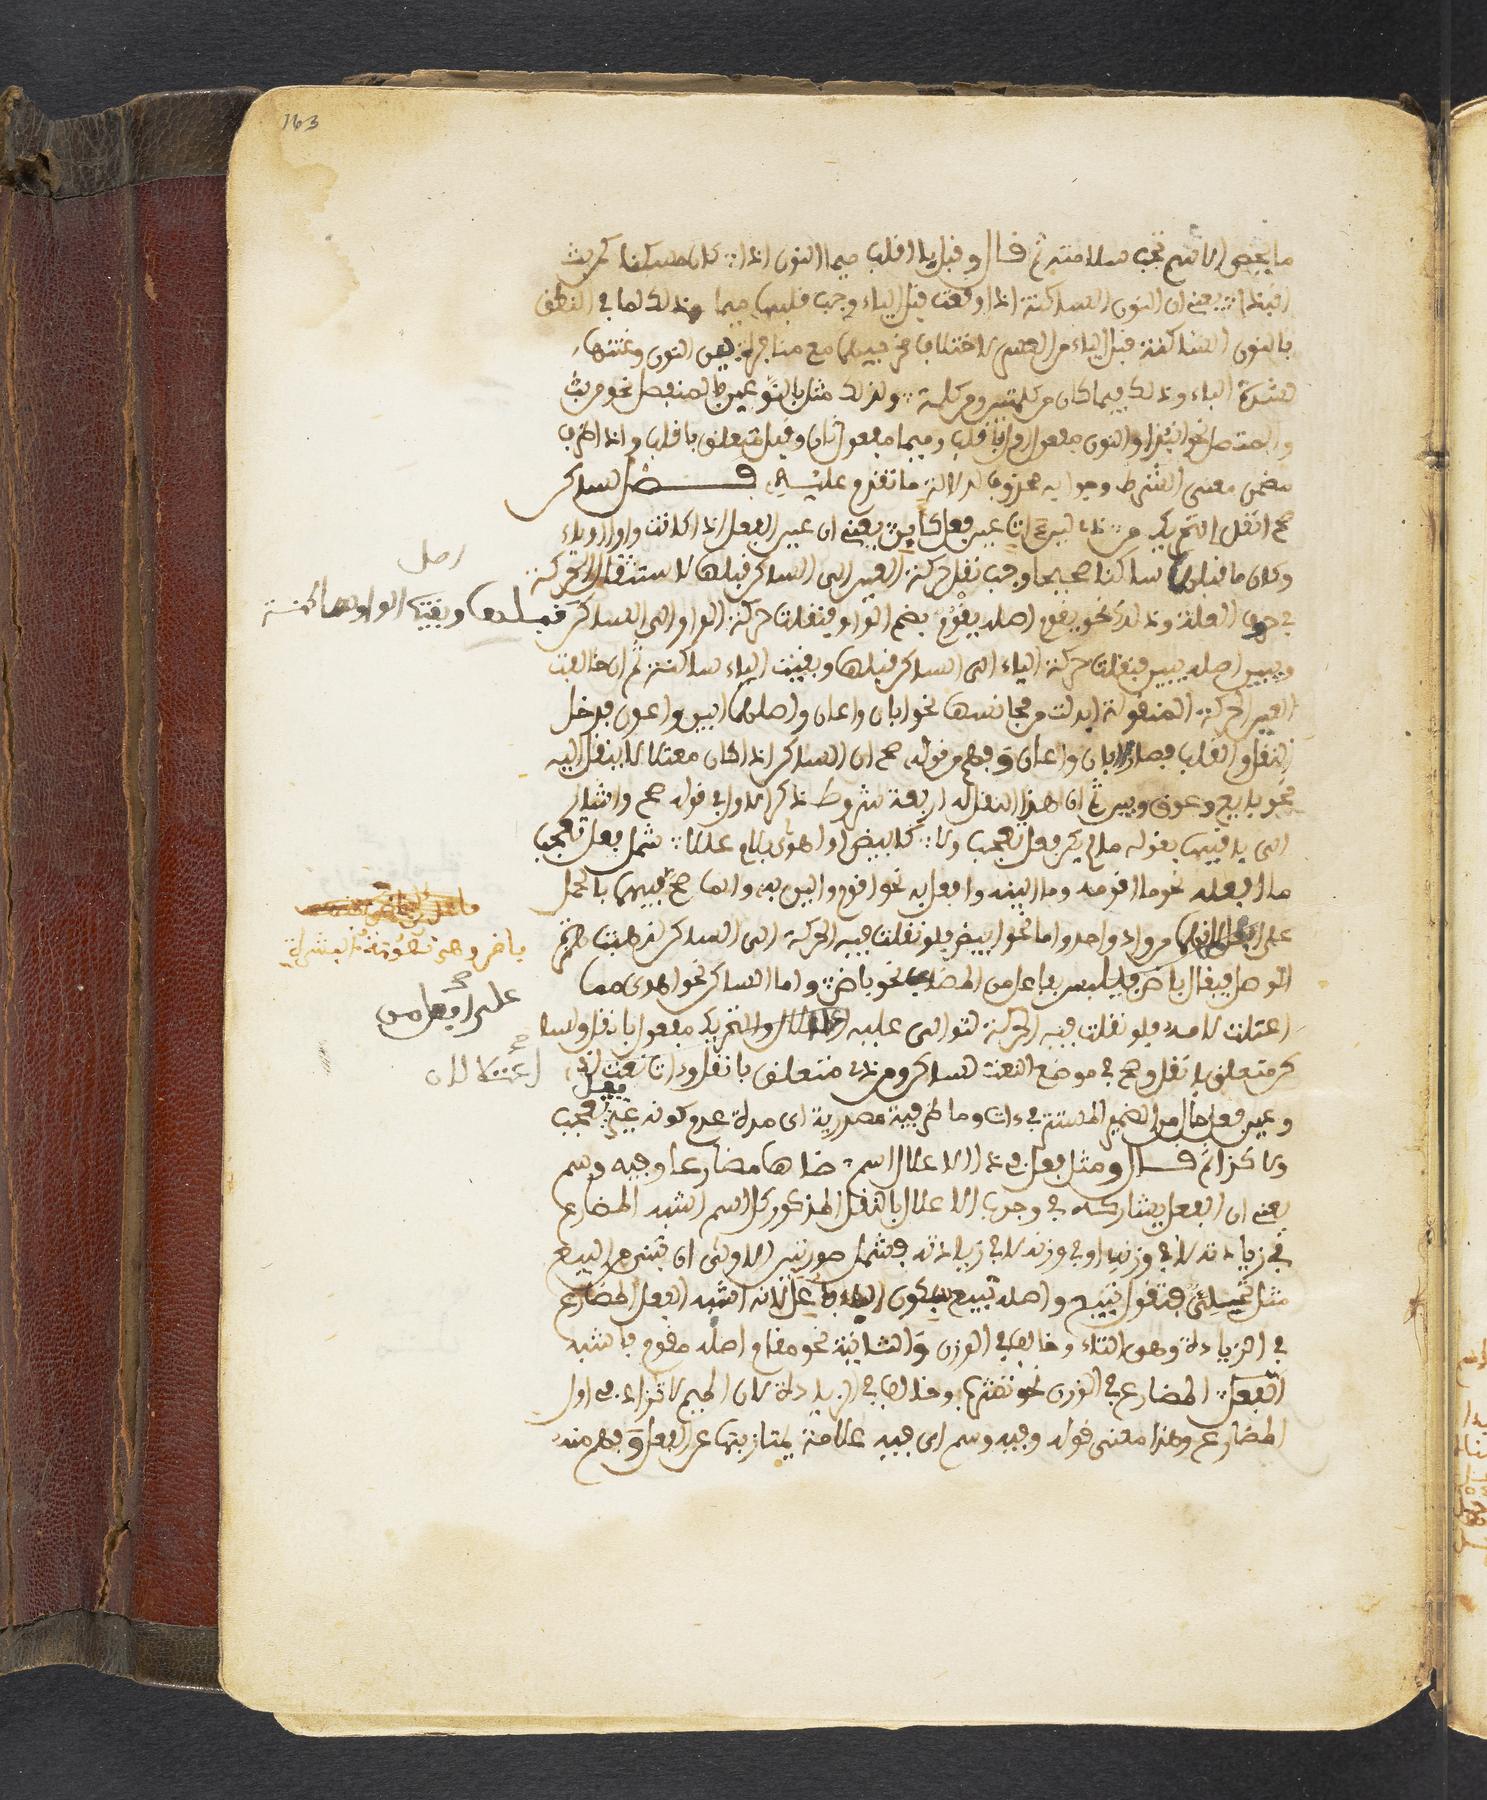 163
ما يخص الاسم تجب سلامته ثم قال وقبل با اقلب ميما النون اذا كان مسكنا كمن بت
انبذا يعني ان النون الساكنة اذا وقعت قبل الباء وجب قلبها ميما وذلك لما في النطق
بالنون الساكنة قبل الباء من العسر لاختلاف مخرجيهما مع منافرة لين النون وغنتها
لشدة الباء وذلك فيما كان من كلمتين ومن كلمة ولذلك مثل بالنوعين فالمنفصل نحو من بت
والمتصل نحو انبذا والنون مفعول اول باقلب وميما مفعول ثان وقبل متعلق باقلب واذا ظرف
مضمن معنى الشرط وجوابه محذوف لدلالة ما تقدم عليه فصل لساكن
صح انقل التحريك من ذي لين ات عين فعل كأبن يعني ان عين الفعل اذا كانت واوا او ياء
وكان ما قبلها ساكنا صحيحا وجب نقل حركة العين الى الساكن قبلها لاستثقال الحركة
في حرف العلة وذلك نحو يقوم اصله يقوم بضم الواو فنقلت حركة الواو الى الساكن قبلها وبقيت الواو ساكنة
ويبين اصله يبين فنقلت حركة الياء الى الساكن قبلها وبقيت الياء ساكنة ثم ان خالفت
العين الحركة المنقولة ابدلت من مجانسها نحو ابان واعان واصلهما ابين واعون فدخل
النقل والقلب فصار ابان واعان وفهم من قوله صح ان الساكن اذا كان معتلا لا ينقل اليه
نحو بايع وعوق وبين ثم ان لهذا النقل اربعة شروط ذكر الاول في قوله صح واشار
الى باقيها بقوله ما لم يكن فعل تعجب ولا كابيض او اهوى بلام عللا شمل فعل تعجب
ما افعله نحو ما اقومه وما ابينه وافعل به نحو اقوم وابين به وانما صح فيهما بالحمل
على من واد واحد واما نحو ابيض فلو نقلت فيه الحركة الى الساكن لذهبت همزة
الوصل فيقال باض فيلتبس بفاعل من المضاعف نحو باض واما الساكن نحو اهوى مما
اعتلت لامه فلو نقلت فيه الحركة لتوالى عليه والتحريك مفعول بانقل ولسا
كن متعلق بانقل وصح في موضع النعت لساكن ومن ذي متعلق بانقل وات نعت لذي
وعين فعل حال من الضمير المستتر في ات وما ظرفية مصدرية اى مدة عدم كونه غير فعل تعجب
ولا كذا ثم قال ومثل فعل في ذا الاعلال اسم ضاهى مضارعا وفيه وسم
يعني ان الفعل يشاركه في وجوب الاعلال بالنقل المذكور كل اسم اشبه المضارع
في زيادته لا في وزنه او في وزنه لا في زيادته فشمل صورتين الاولى ان تبني من البيع
مثل تحلئ فتقول تبيع واصله تبيع بسكون الباء لانه اشبه الفعل المضارع
في الزيادة وهي التاء وخالف في الوزن والثانية نحو مقام اصله مقوم فاشبه
الفعل المضارع في الوزن نحو تشرب وخالف في الزيادة لان الميم لا تزاد في اول
المضارع وهذا معنى قوله وفيه وسم اى فيه علامة يمتاز بها عن الفعل وفهم منه
اصل
على افعل من
اعتلالان